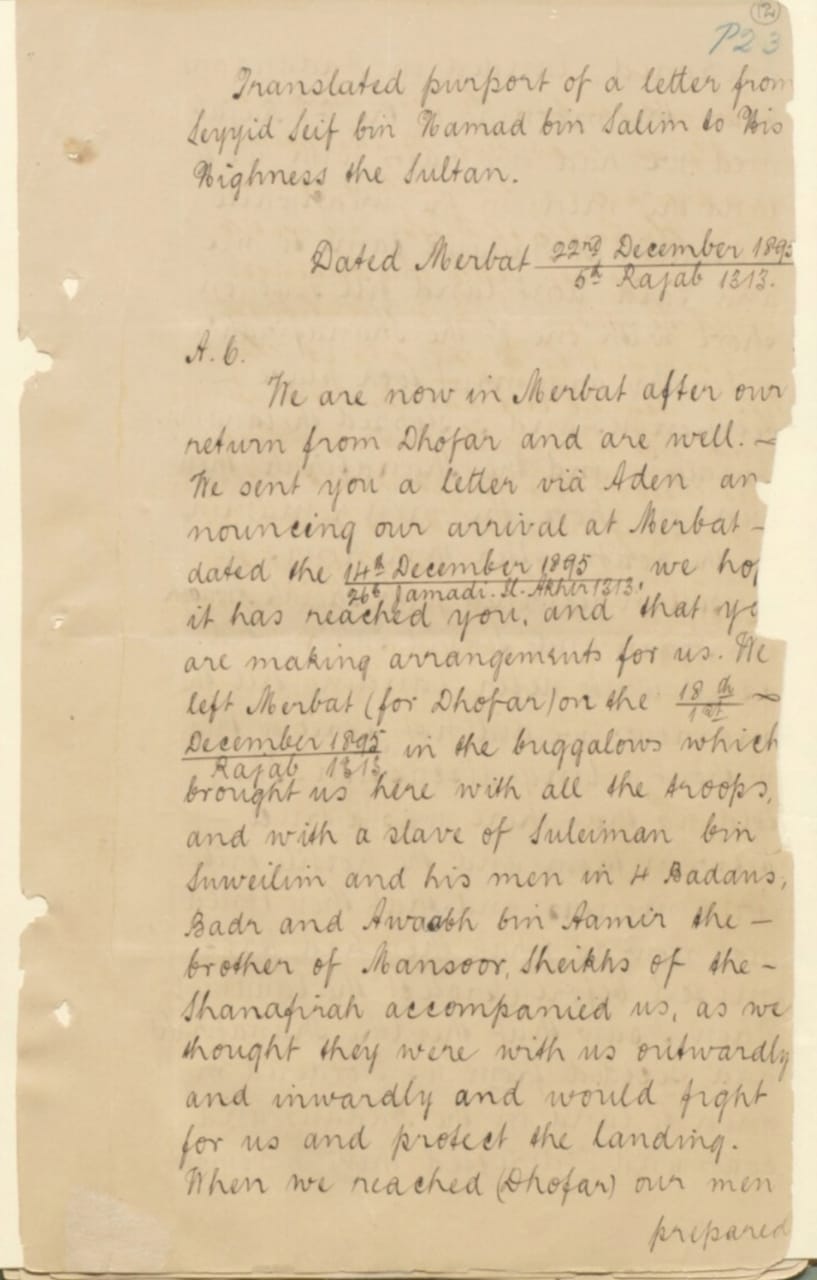 (2)
P23
Translated purport of a letter from
Seyyid Seif bin Hamad bin Salim to His
Highness the Sultan.
Dated Merbat 22nd December 1895
5th Rajab 1313.
A. C.
We are now in Merbat after our
return from Dhofar and are well. ~
We sent you a letter viâ Aden an
nouncing our arrival at Merbat -
dated the 14th December 1895, we hop
26th Jamadi. Il. Akhir 1313.
it has reached you, and that yo
are making arrangements for us. We
left Merbat (for Dhofar) on the 18th ~
1st
December 1895 in the buggalows which
Rajab 1313
brought us here with all the troops,
and with a slave of Suleiman bin
Suweilim and his men in 4 Badans,
Badr and bin Aamir the -
brother of Mansoor, Sheikhs of the -
Shanafirah accompanied us, as we
thought they were with us outwardly
and inwardly and would fight
for us and protect the landing.
When we reached (Dhofar) our men
prepared